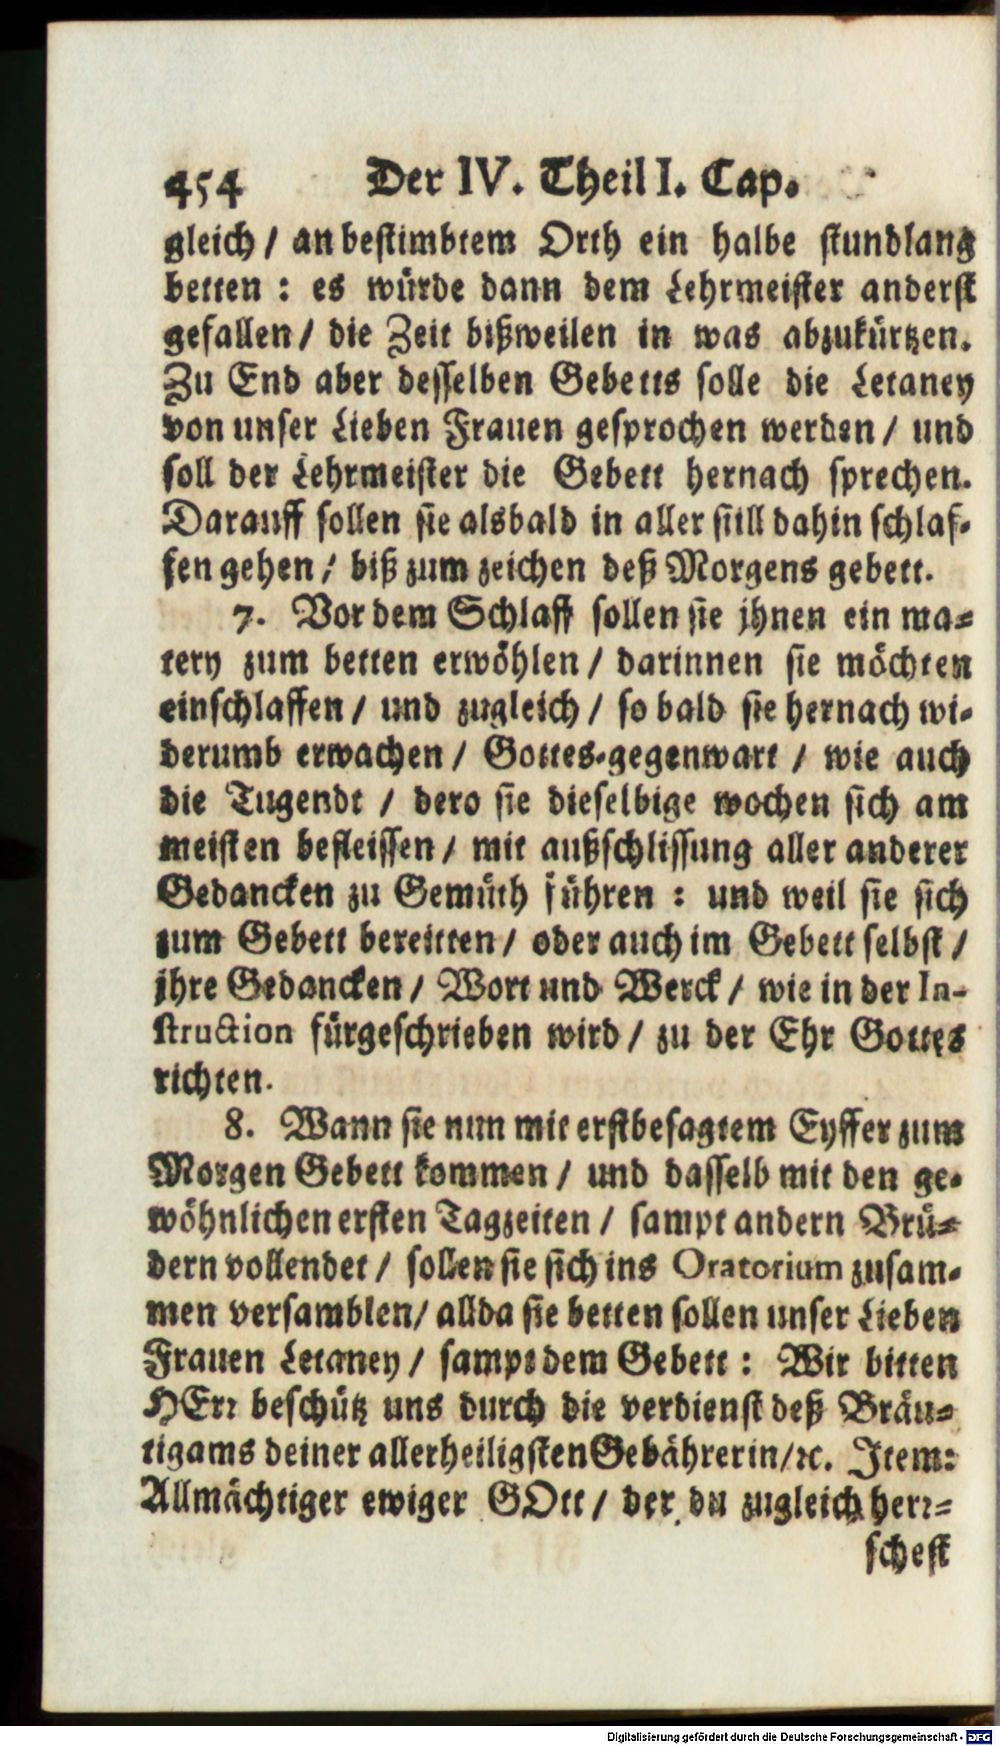 454 Der IV. Theil I. Cap.
gleich / an bestimbtem Orth ein halbe stundlang
betten : es würde dann dem Lehrmeister anderst
gefallen / die Zeit bißweilen in was abzukürtzen.
Zu End aber desselben Gebetts solle die Letaney
von unser Lieben Frauen gesprochen werden / und
soll der Lehrmeister die Gebett hernach sprechen.
Darauff sollen sie alsbald in aller still dahin schlaf-
fen gehen / biß zum zeichen deß Morgens gebett.
7. Vor dem Schlaff sollen sie jhnen ein ma-
tery zum betten erwöhlen / darinnen sie möchten
einschlaffen / und zugleich / so bald sie hernach wi-
derumb erwachen / Gottes-gegenwart / wie auch
die Tugendt / dero sie dieselbige wochen sich am
meisten befleissen / mit außschlissung aller anderer
Gedancken zu Gemüth führen : und weil sie sich
zum Gebett bereitten / oder auch im Gebett selbst /
jhre Gedancken / Wort und Werck / wie in der In-
struction fürgeschrieben wird / zu der Ehr Gottes
richten.
8. Wann sie nun mit erstbesagtem Eyffer zum
Morgen Gebett kommen / und dasselb mit den ge-
wöhnlichen ersten Tagzeiten / sampt andern Brü-
dern vollendet / sollen sie sich ins Oratorium zusam-
men versamblen / allda sie betten sollen unser Lieben
Frauen Letaney / sampt dem Gebett : Wir bitten
HErr beschütz uns durch die verdienst deß Bräu-
tigams deiner allerheiligsten Gebährerin / ꝛc. Item:
Allmächtiger ewiger GOtt / der du zugleich herr-
schest
Digitalisierung gefördert durch die Deutsche Forschungsgemeinschaft - DFG